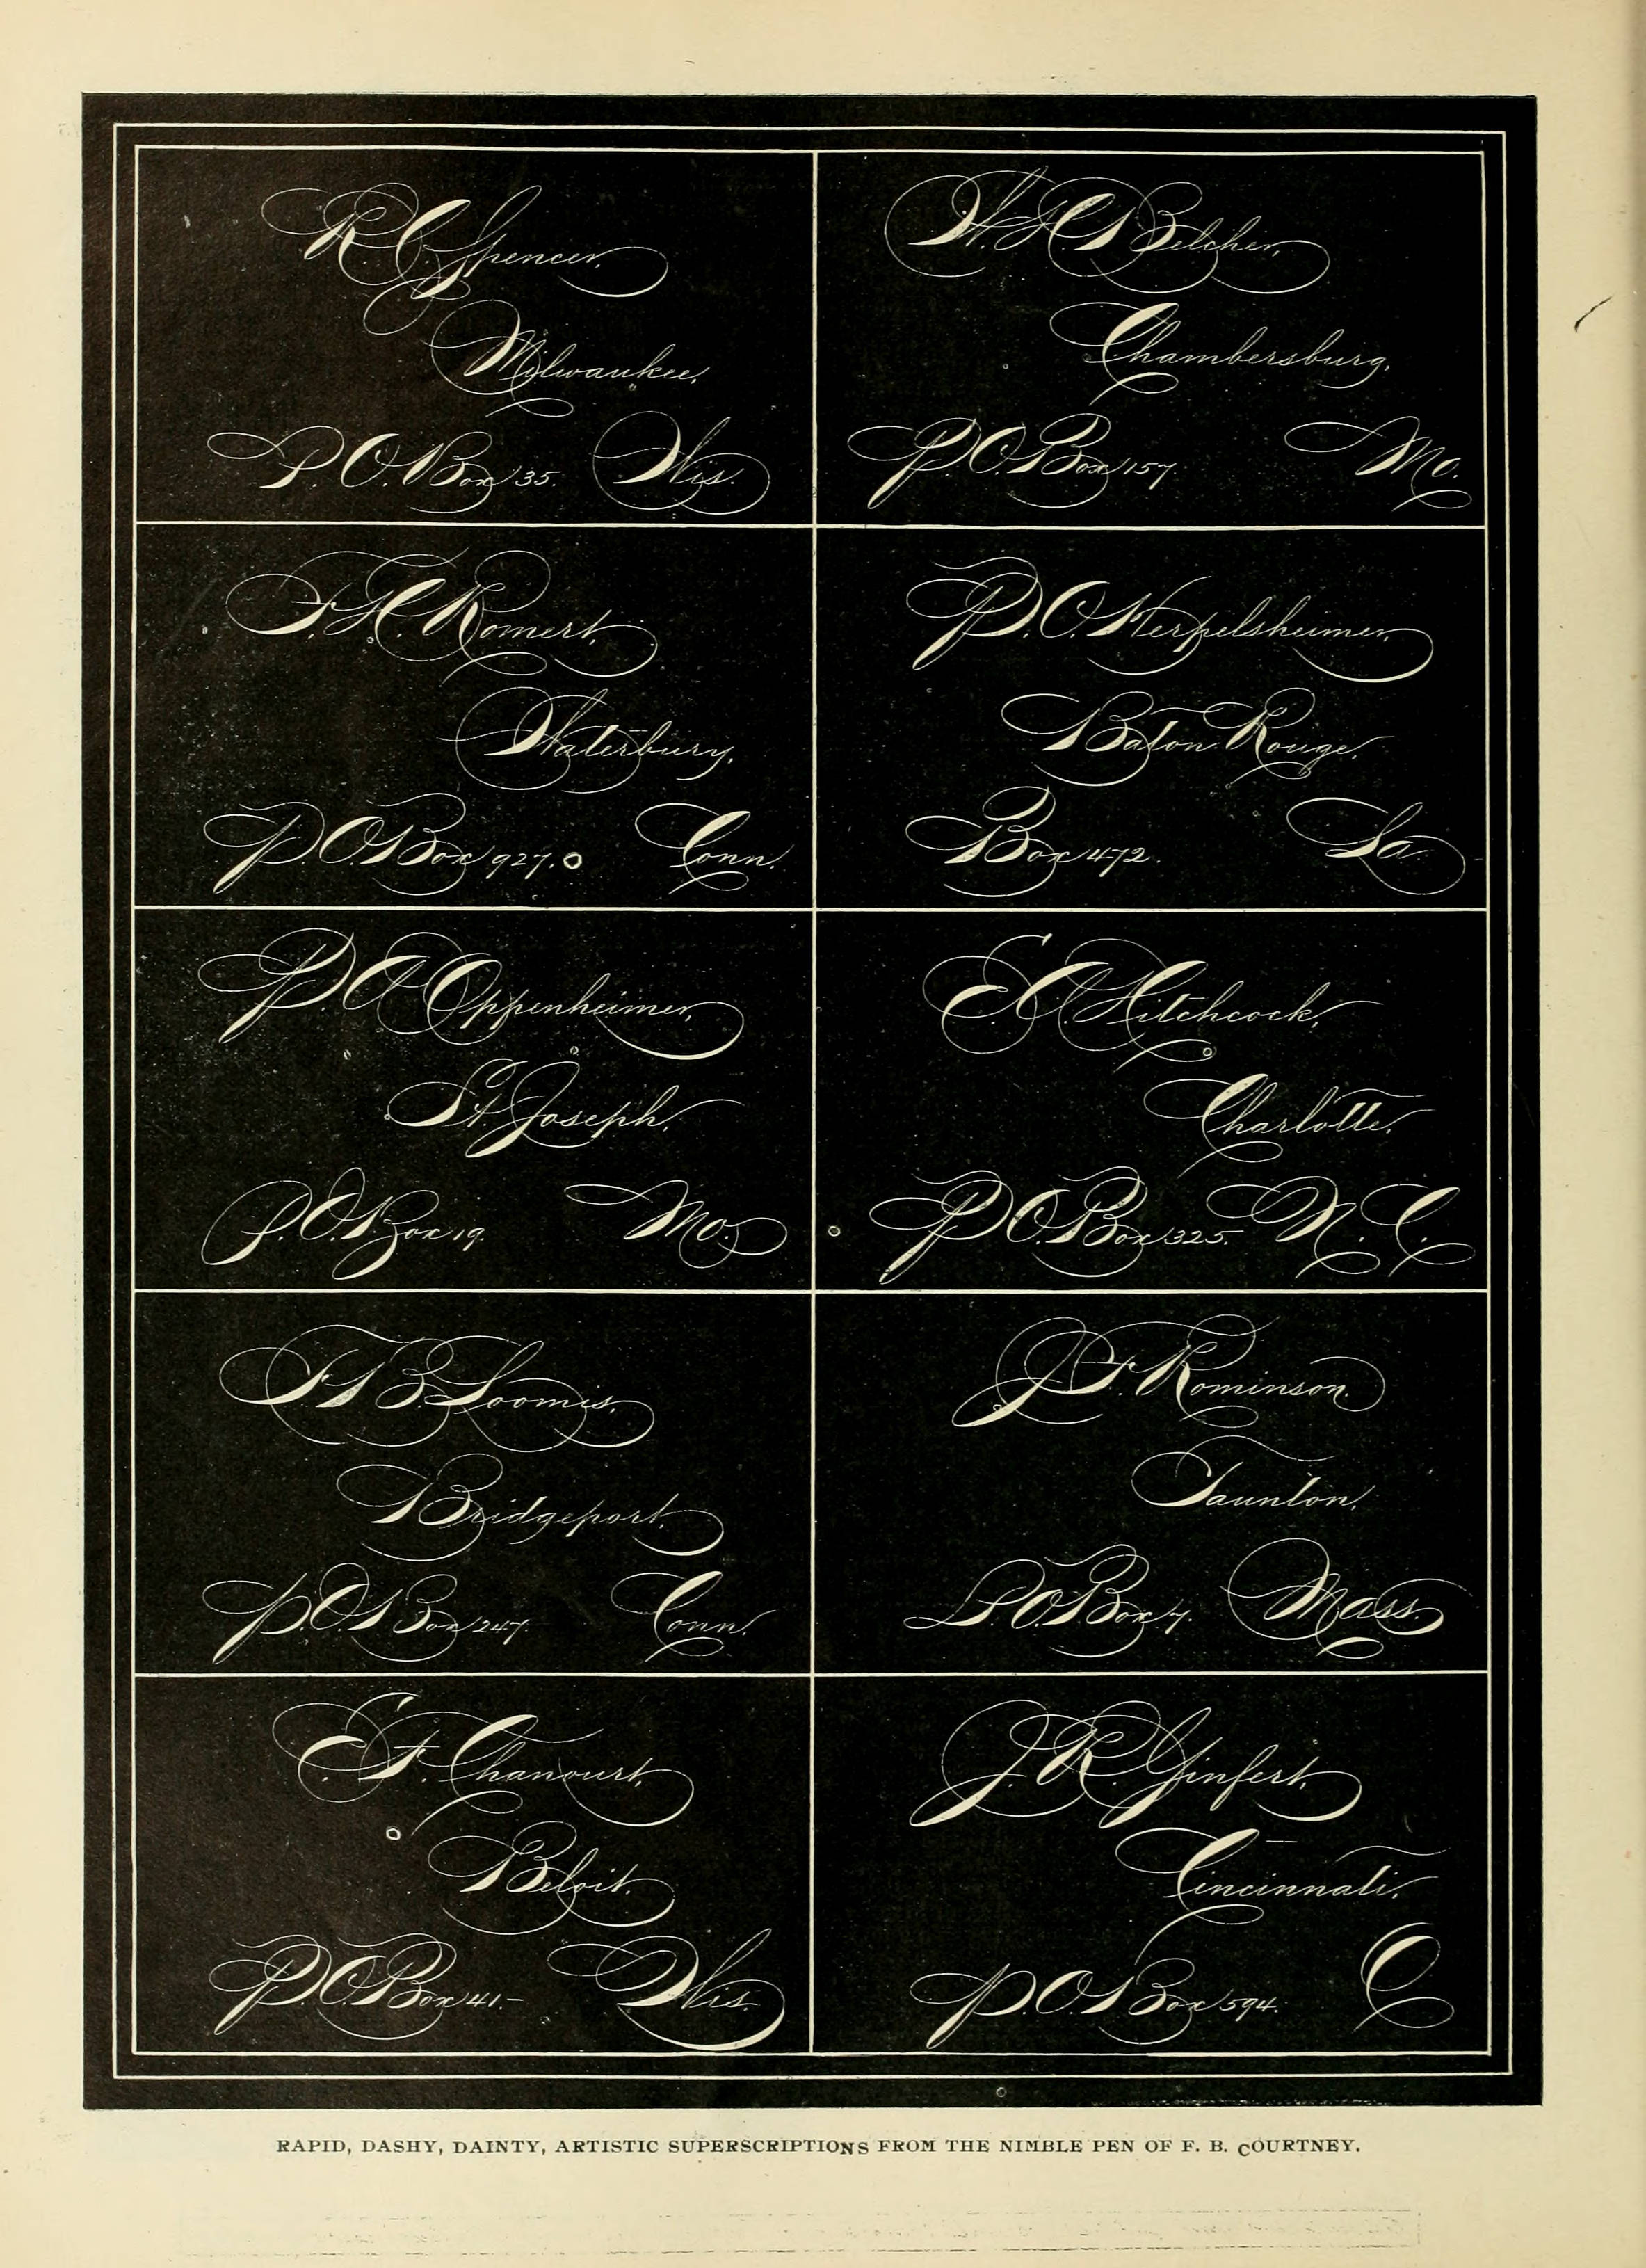 R. C. Spencer,
Milwaukee,
P. O. Box 35. Wis.
W. H. Belcher,
Chambersburg,
P. O. Box 157. Mo.
F. H. Romert,
Waterbury,
P. O. Box 927. Conn.
P. O. Herpelsheimer,
Baton Rouge,
Box 472. La
P. A. Oppenheimer,
St. Joseph,
P. O. Box 19. Mo.
E. A. Hitchcock,
Charlotte,
P. O. Box 325. N. C.
F. B. Loomis,
Bridgeport,
P. O. Box 247. Conn.
J. F. Rominson.
Taunton,
P. O. Box 7. Mass.
E. F. Chanourt,
Beloit,
P. O. Box 41.- Wis.
J. R. Ginfert,
Cincinnati,
P. O. Box 594. O
RAPID, DASHY, DAINTY, ARTISTIC SUPERSCRIPTIONS FROM THE NIMBLE PEN OF F. B. COURTNEY.